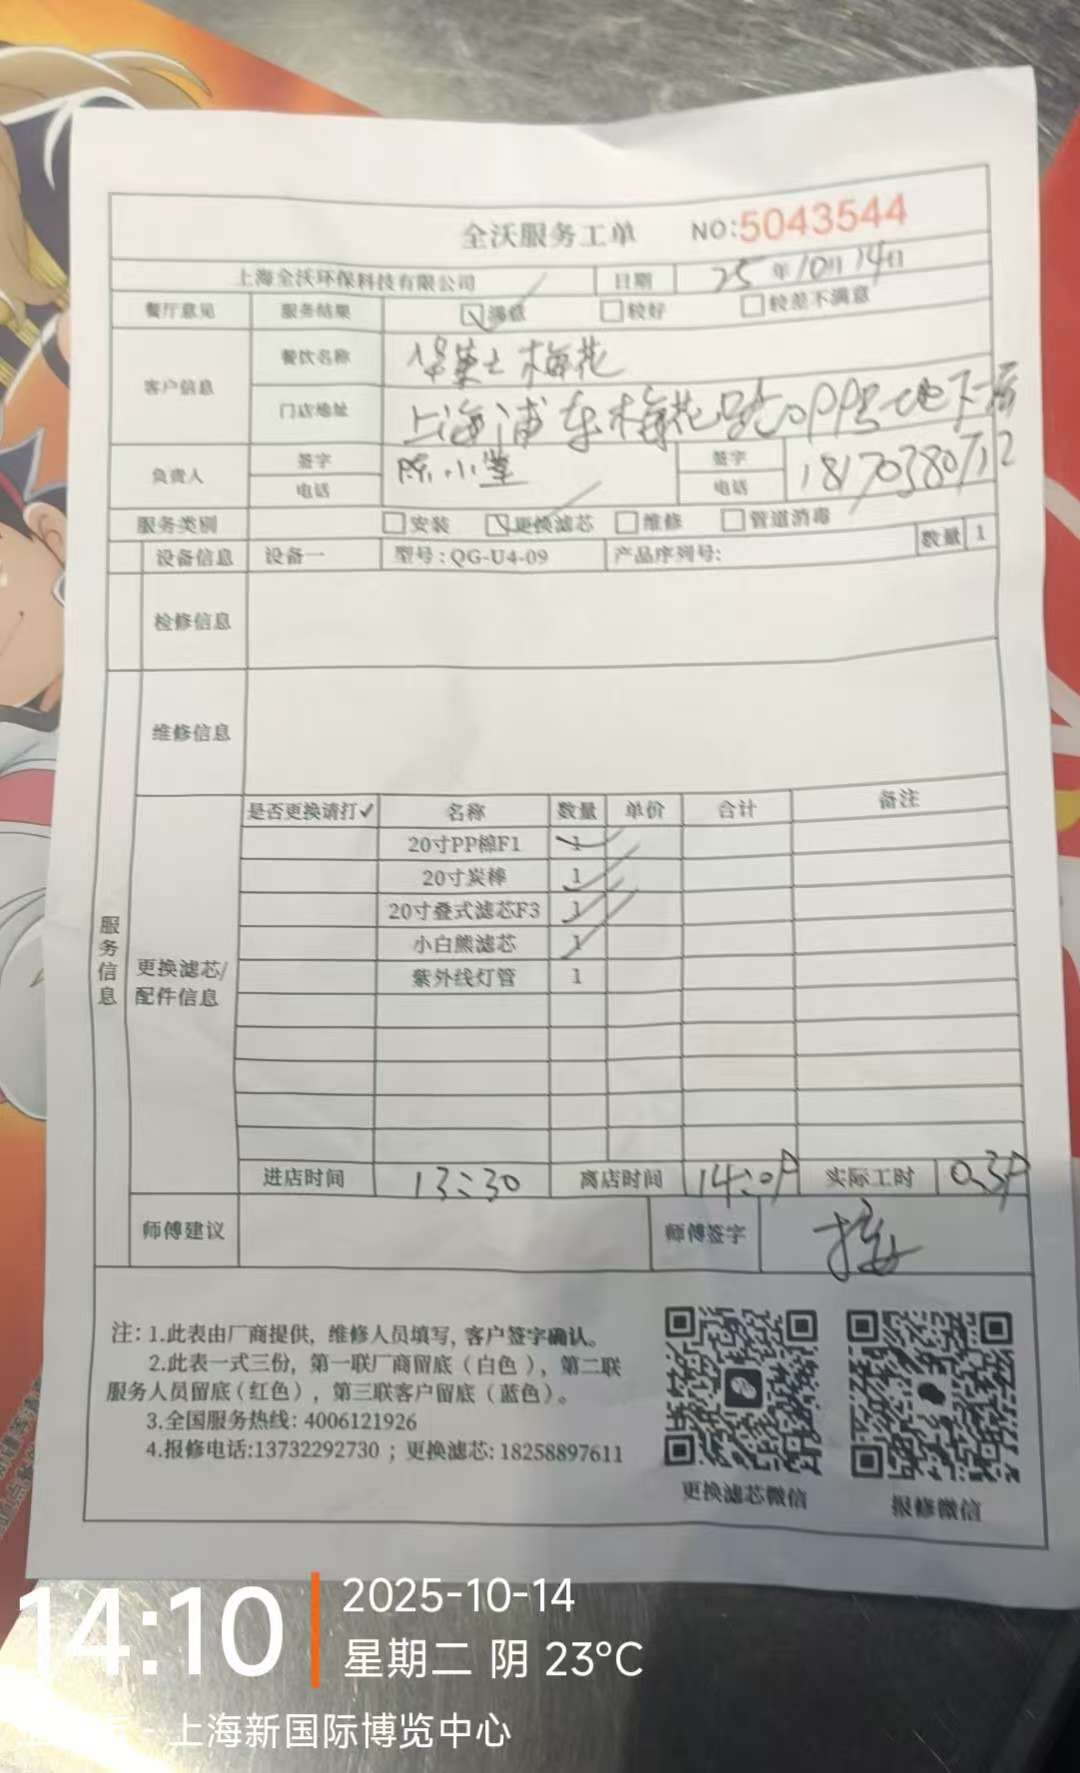 全沃服务工单 NO:5043544
上海全沃环保科技有限公司 日期 25年10月14日
餐厅意见 服务结果 满意 较好 较差不满意
客户信息 餐饮名称 华莱士梅花
门店地址 上海浦东梅花路 号地下一层
负责人 签字 陈小 签字
电话 电话
服务类别 安装 更换滤芯 维修 管道消毒
设备信息 设备一 型号:QG-U4-09 产品序列号: 数量 1
检修信息
维修信息
服务信息
更换滤芯/
配件信息
是否更换请打✓ 名称 数量 单价 合计 备注
20寸PP棉F1 1
20寸炭棒 1
20寸叠式滤芯F3 1
小白熊滤芯 1
紫外线灯管 1
进店时间 13:30 离店时间 实际工时
师傅建议 师傅签字
注: 1.此表由厂商提供, 维修人员填写, 客户签字确认。
2.此表一式三份, 第一联厂商留底(白色), 第二联
服务人员留底(红色), 第三联客户留底(蓝色)。
3.全国服务热线: 4006121926
4.报修电话:13732292730 ; 更换滤芯: 18258897611
更换滤芯微信 报修微信
14:10
2025-10-14
星期二 阴 23°C
上海新国际博览中心